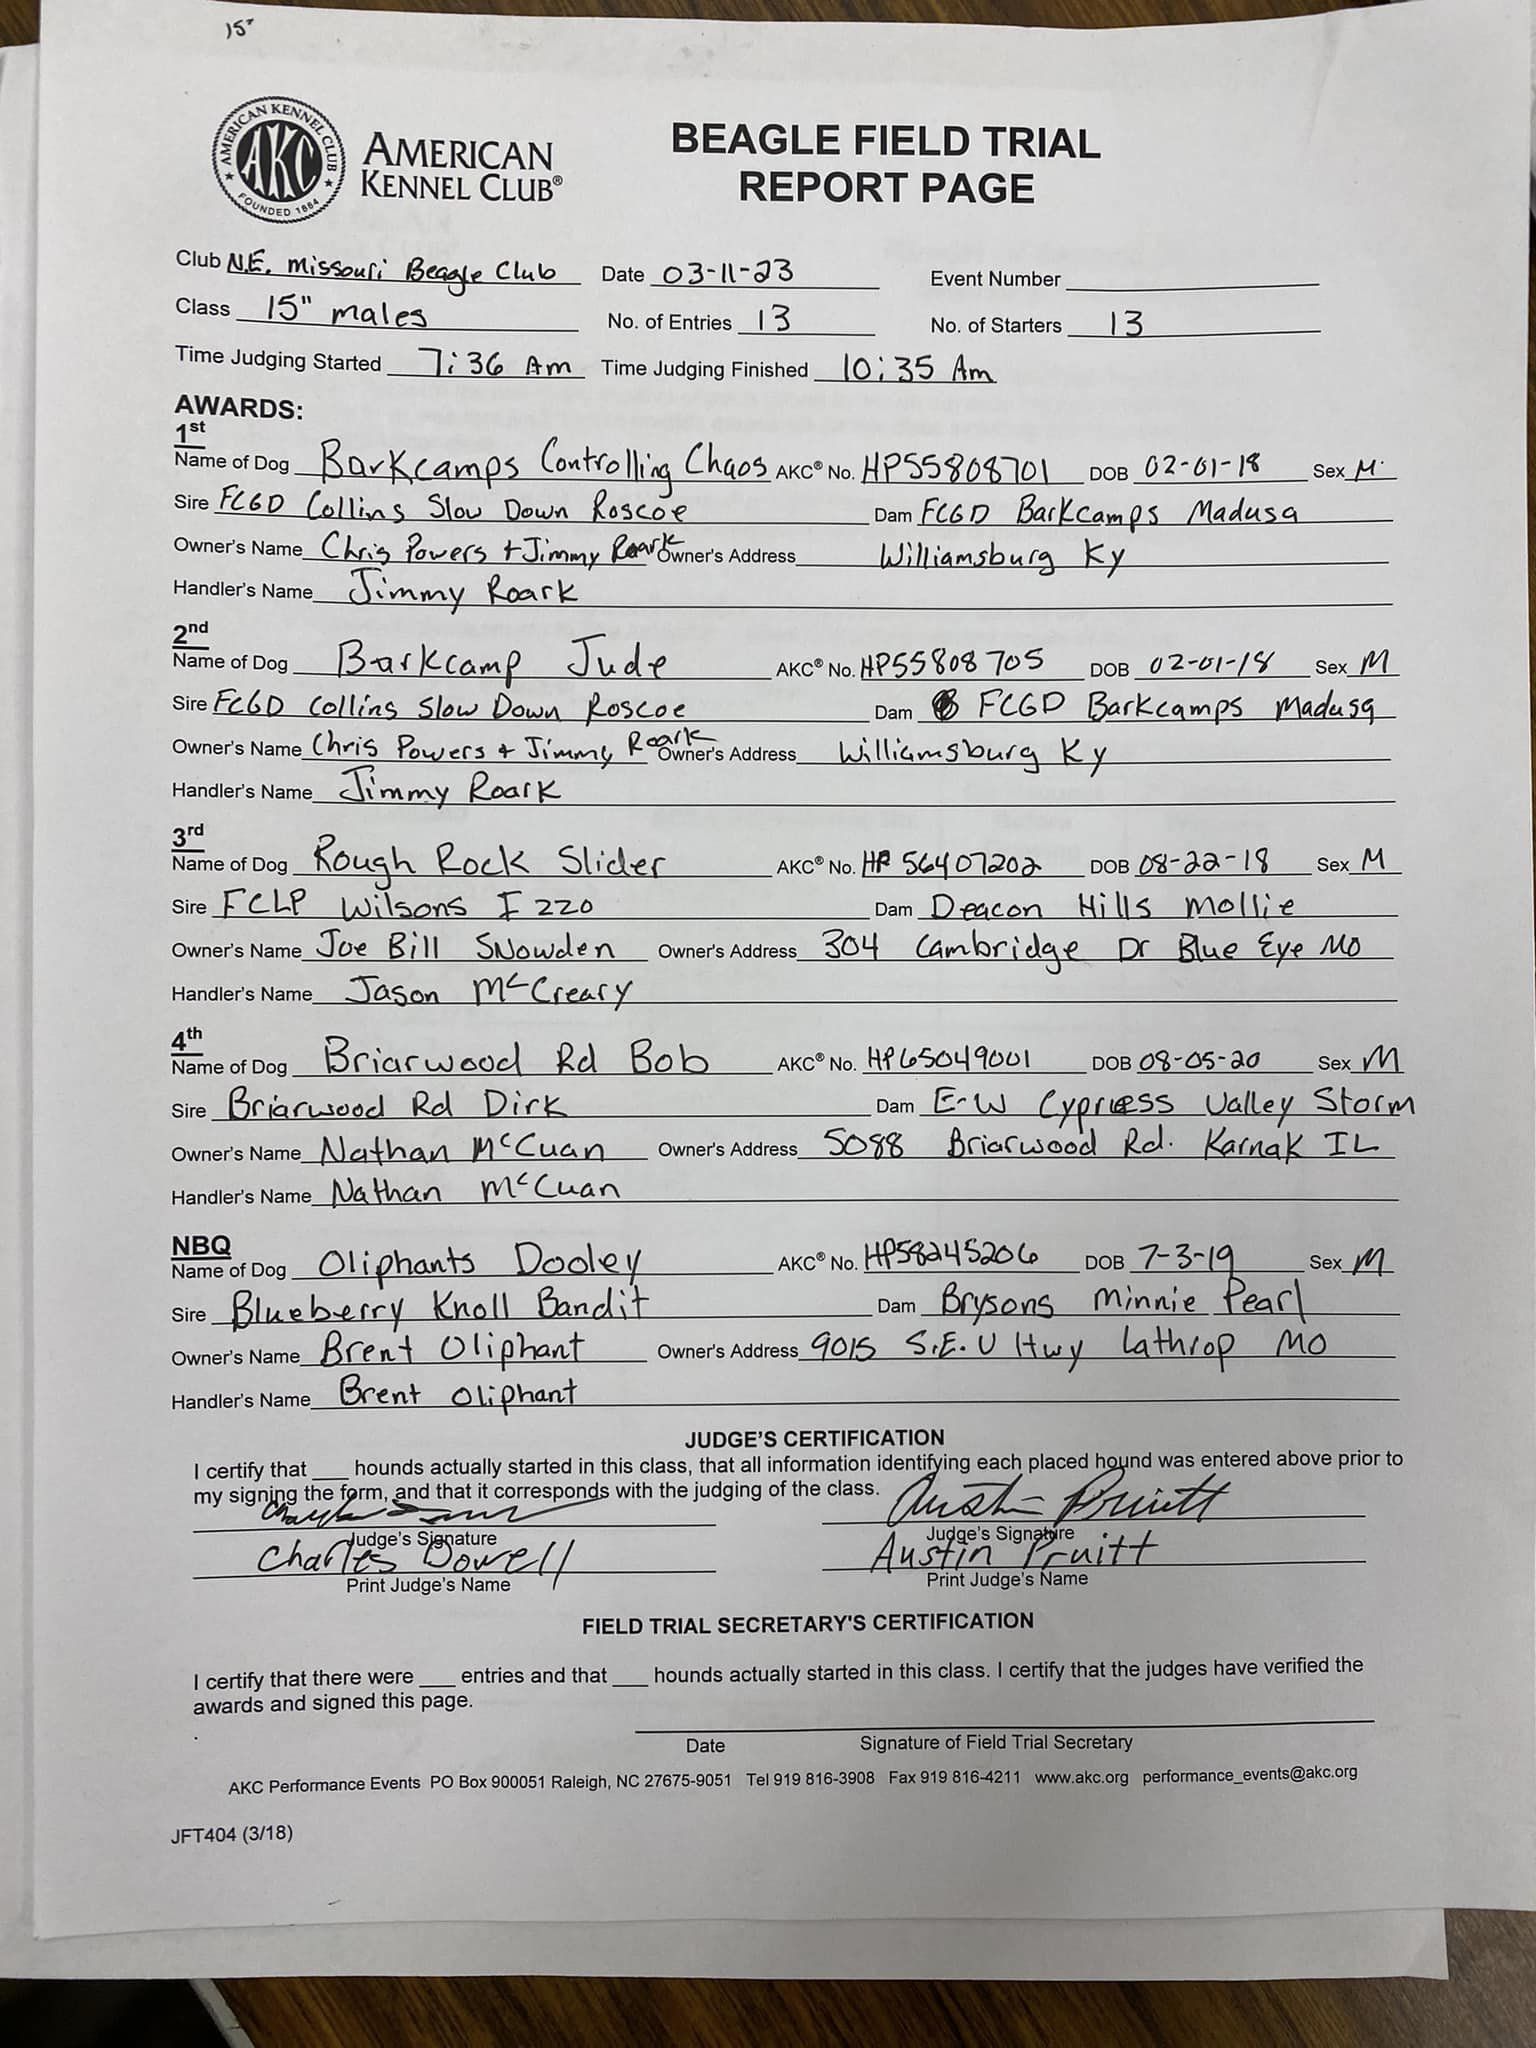 15"
AMERICAN KENNEL CLUB
AKC
FOUNDED 1884
AMERICAN
KENNEL CLUB®
BEAGLE FIELD TRIAL
REPORT PAGE
Club N.E. Missouri Beagle Club Date 03-11-23 Event Number
Class 15" males No. of Entries 13 No. of Starters 13
Time Judging Started 7:36 Am Time Judging Finished 10:35 Am
AWARDS:
1st
Name of Dog Barkcamps Controlling Chaos AKC® No. HP55808701 DOB 02-01-18 Sex M
Sire FCGD Collins Slow Down Roscoe Dam FCGD Barkcamps Madusa
Owner's Name Chris Powers + Jimmy Roark Owner's Address Williamsburg Ky
Handler's Name Jimmy Roark
2nd
Name of Dog Barkcamp Jude AKC® No. HP55808705 DOB 02-01-18 Sex M
Sire FCGD Collins Slow Down Roscoe Dam FCGD Barkcamps Madusa
Owner's Name Chris Powers + Jimmy Roark Owner's Address Williamsburg Ky
Handler's Name Jimmy Roark
3rd
Name of Dog Rough Rock Slider AKC® No. HP 56407202 DOB 08-22-18 Sex M
Sire FCLP Wilsons I 220 Dam Deacon Hills Mollie
Owner's Name Joe Bill Snowden Owner's Address 304 Cambridge Dr Blue Eye MO
Handler's Name Jason McCreary
4th
Name of Dog Briarwood Rd Bob AKC® No. HP65049001 DOB 08-05-20 Sex M
Sire Briarwood Rd Dirk Dam E-W Cypress Valley Storm
Owner's Name Nathan McCuan Owner's Address 5088 Briarwood Rd. Karnak IL
Handler's Name Nathan McCuan
NBQ
Name of Dog Oliphants Dooley AKC® No. HP58245206 DOB 7-3-19 Sex M
Sire Blueberry Knoll Bandit Dam Brysons Minnie Pearl
Owner's Name Brent Oliphant Owner's Address 9015 S.E. U Hwy Lathrop MO
Handler's Name Brent Oliphant
JUDGE'S CERTIFICATION
I certify that ___ hounds actually started in this class, that all information identifying each placed hound was entered above prior to
my signing the form, and that it corresponds with the judging of the class.
Austin Pruitt
Judge's Signature Judge's Signature
Charles Dowell Austin Pruitt
Print Judge's Name Print Judge's Name
FIELD TRIAL SECRETARY'S CERTIFICATION
I certify that there were ___ entries and that ___ hounds actually started in this class. I certify that the judges have verified the
awards and signed this page.
Date Signature of Field Trial Secretary
AKC Performance Events PO Box 900051 Raleigh, NC 27675-9051 Tel 919 816-3908 Fax 919 816-4211 www.akc.org performance_events@akc.org
JFT404 (3/18)